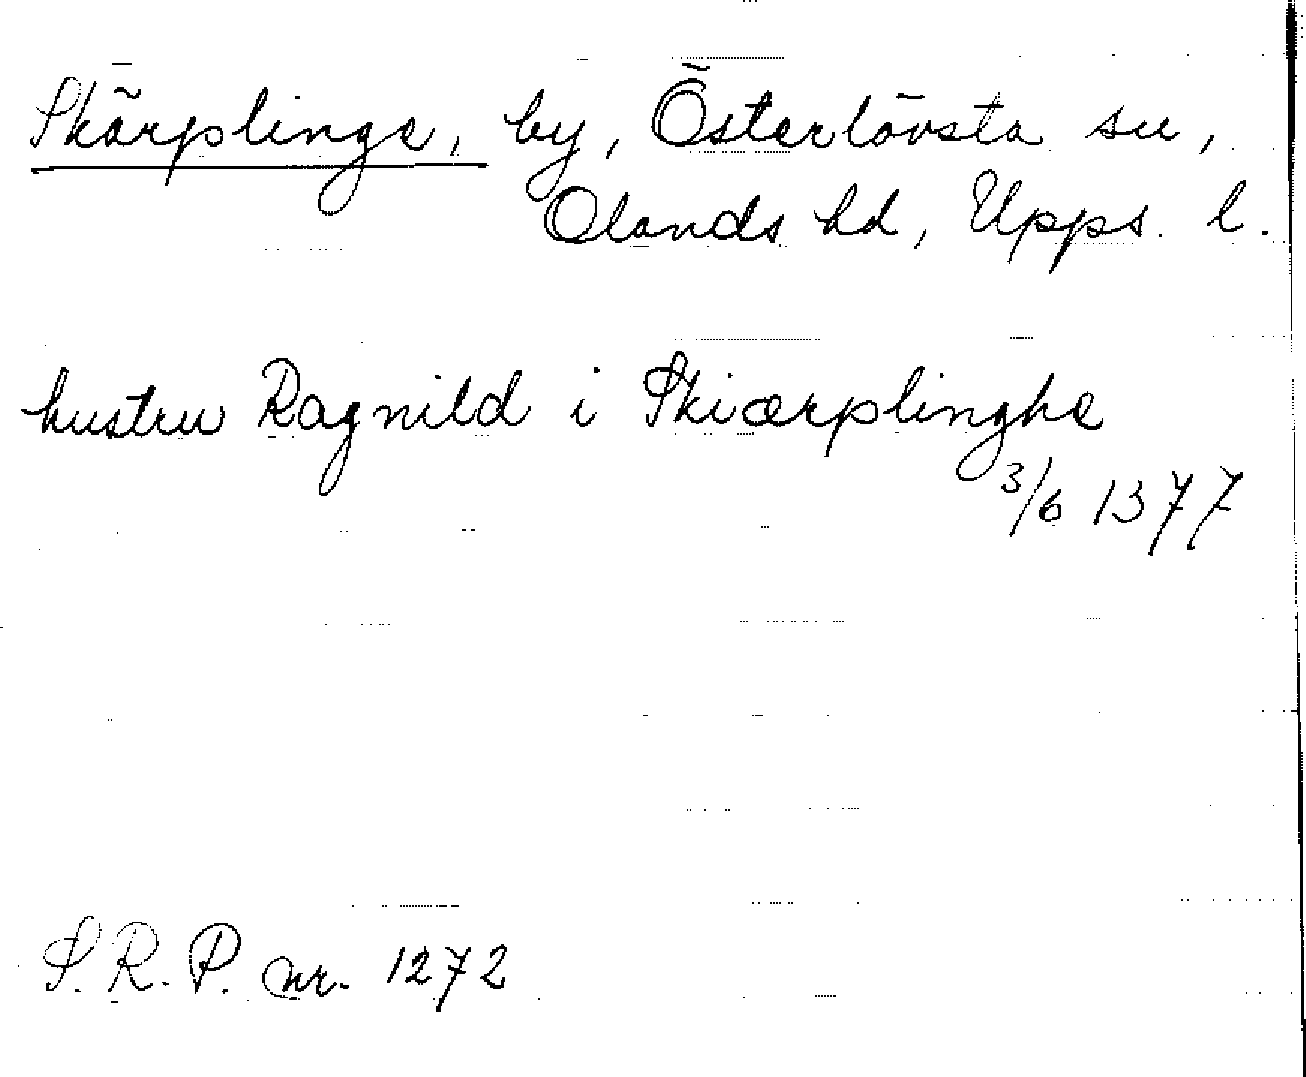 Skärplinge, by, Österlövsta sn,
Olands hd, Upps. l.
hustru Ragnild i Skiærplinghe
3/6 1377
S. R. P. nr. 1272